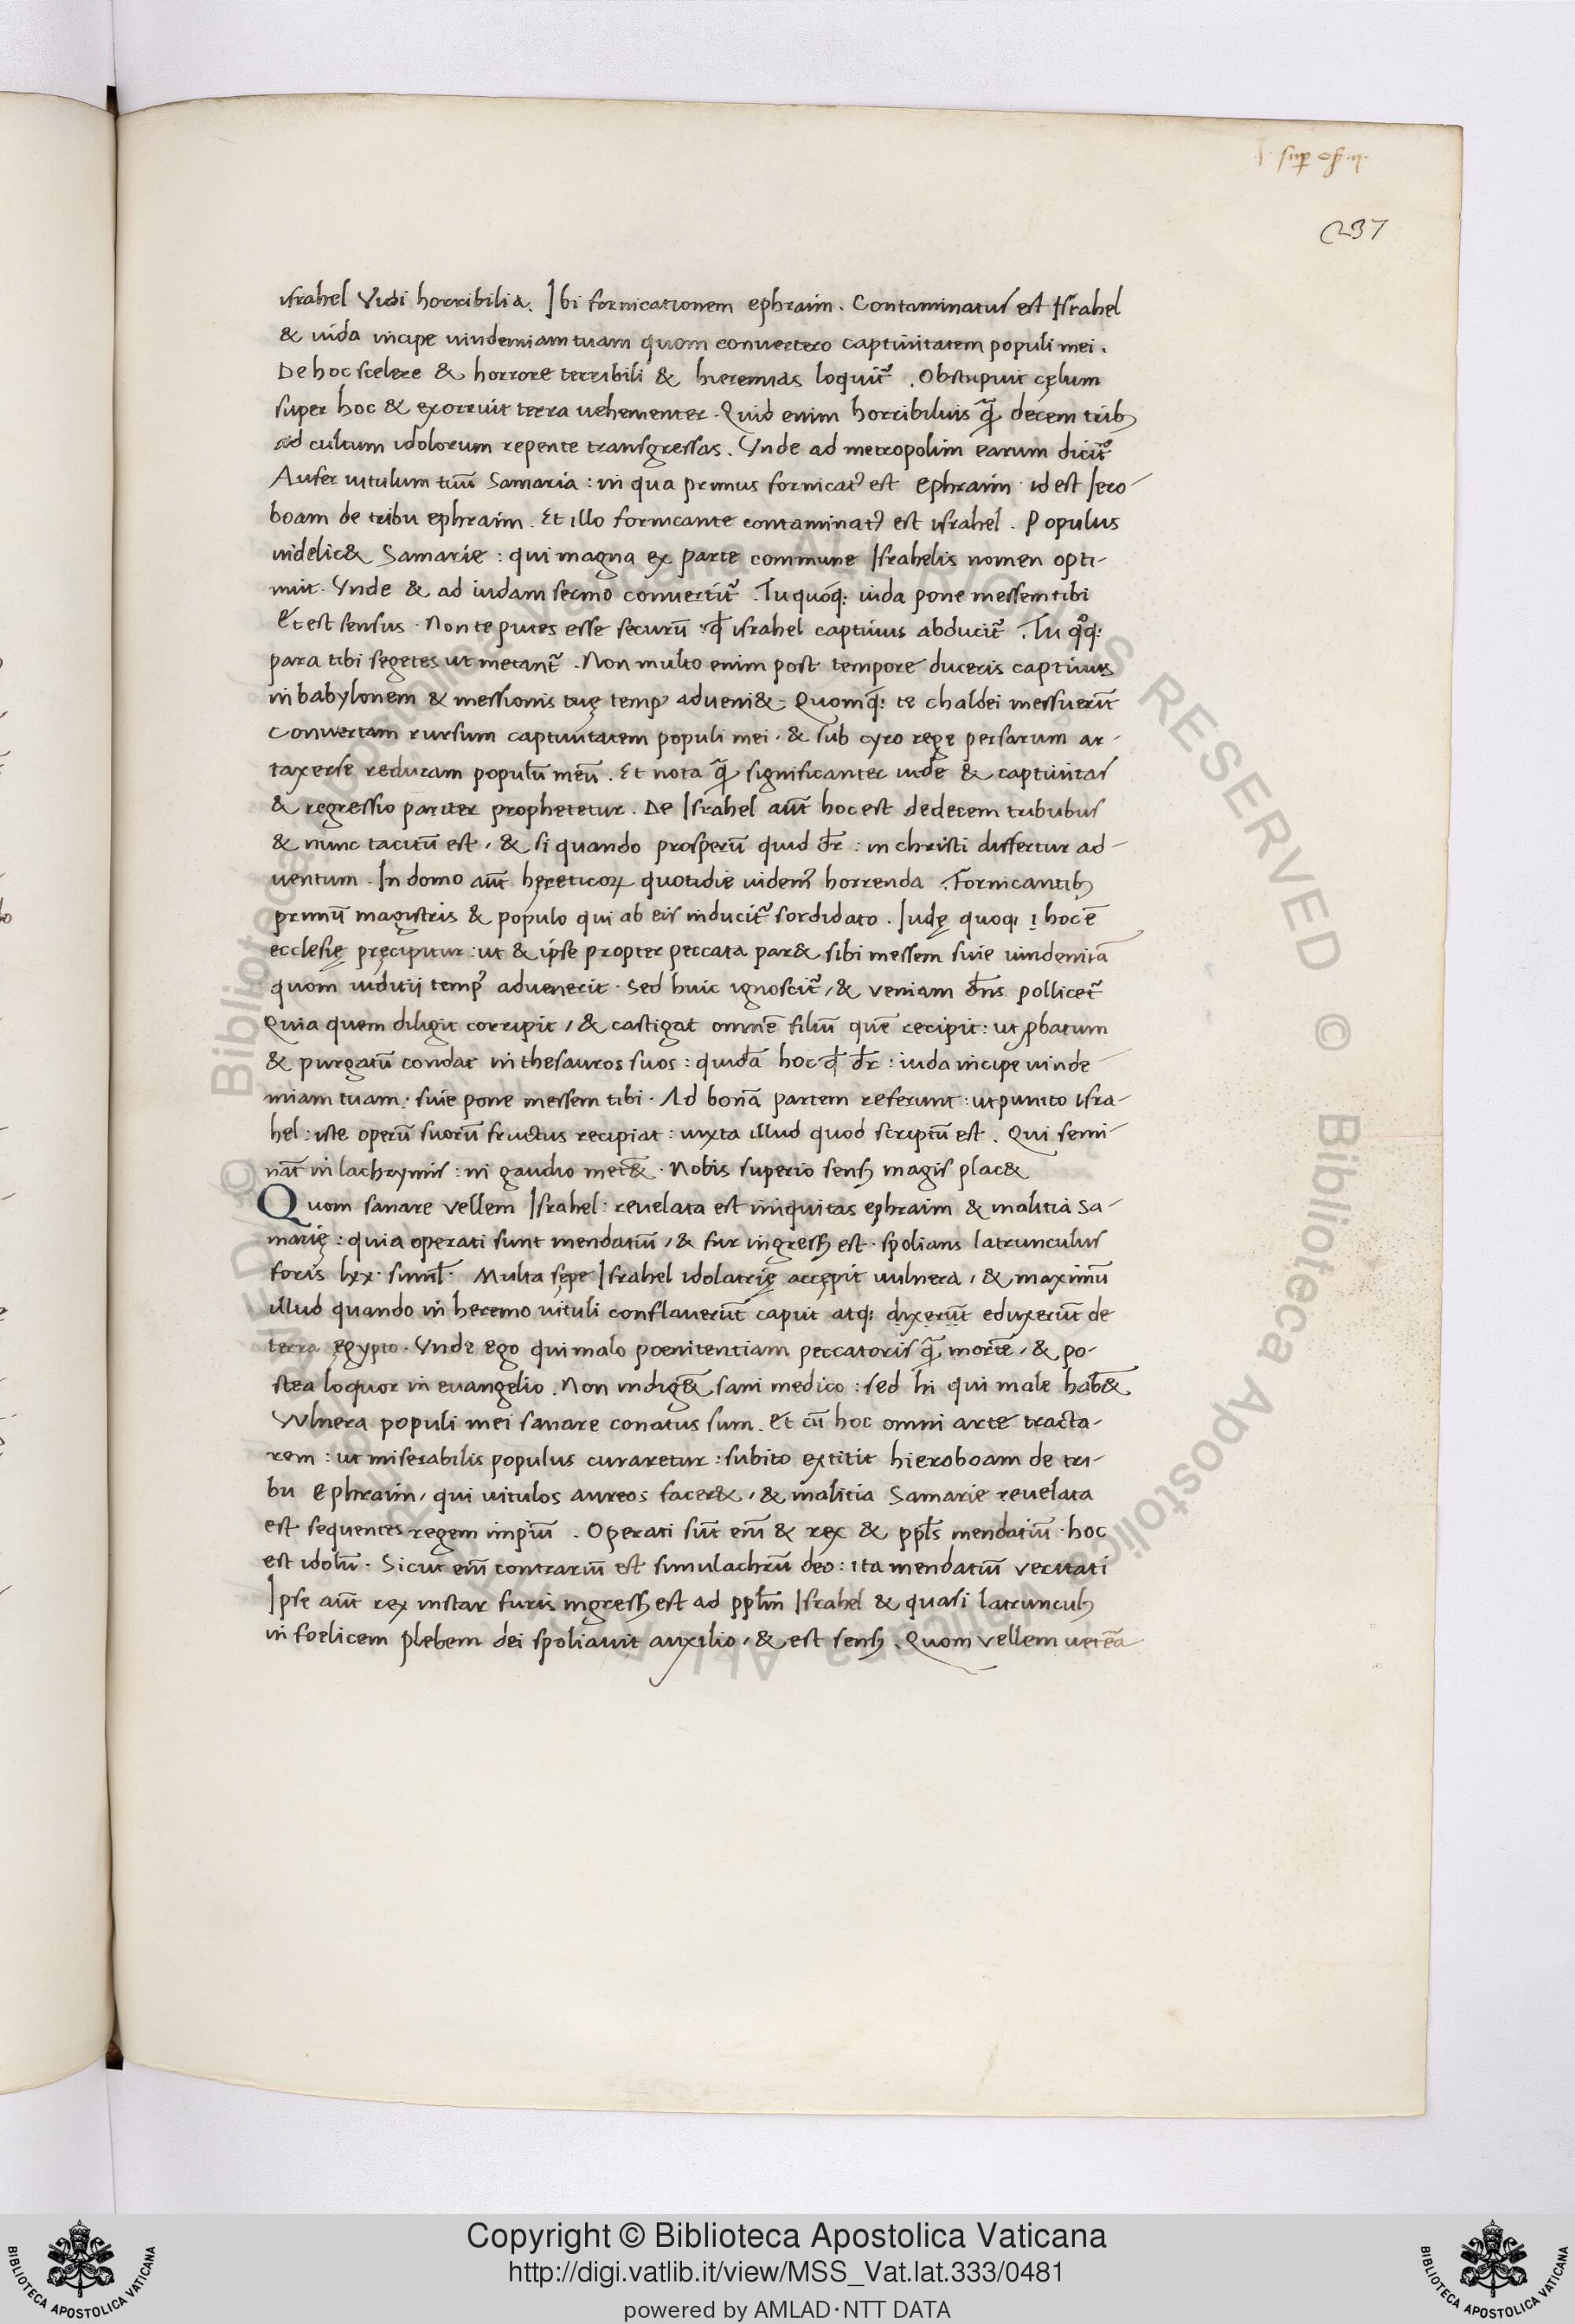 sup osee
237
israhel Vidi horribilia. Ibi fornicationem ephraim. Contaminatus est Israhel
& iuda incipe uindemiam tuam quom convertero captiuitatem populi mei.
De hoc scelere & horrore terribili & hieremias loquit᷑. Obstupuit cęlum
super hoc & exorruit terra uehementer. Quid enim horribilius q̃ decem trib;
ad cultum idolorum repente transgressas. Vnde ad metropolim earum dicit᷑
Aufer uitulum tuū Samaria: in qua primus fornicatꝰ est ephraim id est Iero-
boam de tribu ephraim. Et illo fornicante contaminatꝰ est israhel. Populus
uidelic& Samarie: qui magna ex parte commune Israhelis nomen opti-
nuit. Vnde & ad iudam sermo convertit᷑. Tu quoq: iuda pone messem tibi
Et est sensus. Non te putes esse securū: q̄ israhel captiuus abducit᷑. Tu qͦq:
para tibi segetes ut metant᷑. Non multo enim post tempore duceris captiuus
in babylonem & messionis tuę tempꝰ adueni&. Quomq̄: te chaldei messuerūt
Convertam rursum captiuitatem populi mei. & sub cyro rege persarum ar-
taxerse reducam populū meū. Et nota q̃ significanter iude & captiuitas
& regressio pariter prophetetur. De Israhel aūt hoc est de decem tribubus
& nunc tacitū est, & si quando prosperū quid dr̄: in christi differtur ad-
uentum. In domo aūt hęreticoꝝ quotidie uidem᷑ horrenda. Fornicantib;
primū magistris & populo qui ab eis inducit᷑ sordidato. Iudę quoq: hoc ē
ecclesię pręcipitur: ut & ipse propter peccata par& sibi messem siue uindemiā
quom iuditii tempꝰ aduenerit. Sed huic ignoscit᷑, & veniam dn̄s pollicet᷑
Quia quem diligit corripit, & castigat omnē filiū quē recipit: ut ꝓbatum
& purgatū condat in thesauros suos: quidā hoc q̄ dr̄: iuda incipe uinde-
miam tuam: siue pone messem tibi. Ad bonā partem referunt: ut punito isra-
hel: iste operū suorū fructus recipiat: iuxta illud quod scriptū est. Qui semi-
nāt in lachrymis: in gaudio met&̄. Nobis superio sens; magis plac&
Quom sanare vellem Israhel: reuelata est iniquitas ephraim & malitia Sa-
marię: quia operati sunt mendatiū, & fur ingress; est. spolians latrunculus
foris lxx. simil̄. Multa sępe Israhel idolatrię accępit uulnera, & maximū
illud quando in heremo uituli conflauerūt caput atq: dixerūt eduxerūt de
terra ęgypto. Vnde ego qui malo poenitentiam peccatoris q̃ mortē, & po-
stea loquor in euangelio. Non indig&̄ sani medico: sed hi qui male hab&̄
Vulnera populi mei sanare conatus sum. Et cū hoc omni arte tracta-
rem: ut miserabilis populus curaretur: subito extitit hieroboam de tri-
bu Ephraim, qui uitulos aureos facer&, & malitia Samarie reuelata
est sequentes regem impiū. Operati sūt eni᷑ & rex & ppl̄s mendatiū. hoc
est idolū. Sicut eni᷑ contrariū est simulachrū deo: ita mendatiū veritati
Ipse aūt rex instar furis ingress; est ad ppl̄m Israhel & quasi latruncul;
in foelicem plebem dei spoliauit auxilio, & est sens;. Quom vellem ueterā
Copyright © Biblioteca Apostolica Vaticana
http://digi.vatlib.it/view/MSS_Vat.lat.333/0481
powered by AMLAD·NTT DATA